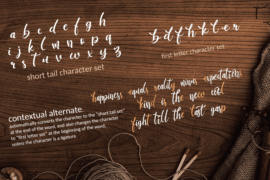 a b c d e f g h
i j k l m n o p q
r s t u v w x y z
short tail character set
b d f h k l t r
first letter character set
happiness equals reality minus expectations
kind is the new cool
fight till the last gasp
contextual alternate.
automatically converts the character to the "short tail set"
at the end of the word, and also changes the character
to "first letter set" at the beginning of the word,
unless the character is a ligature.